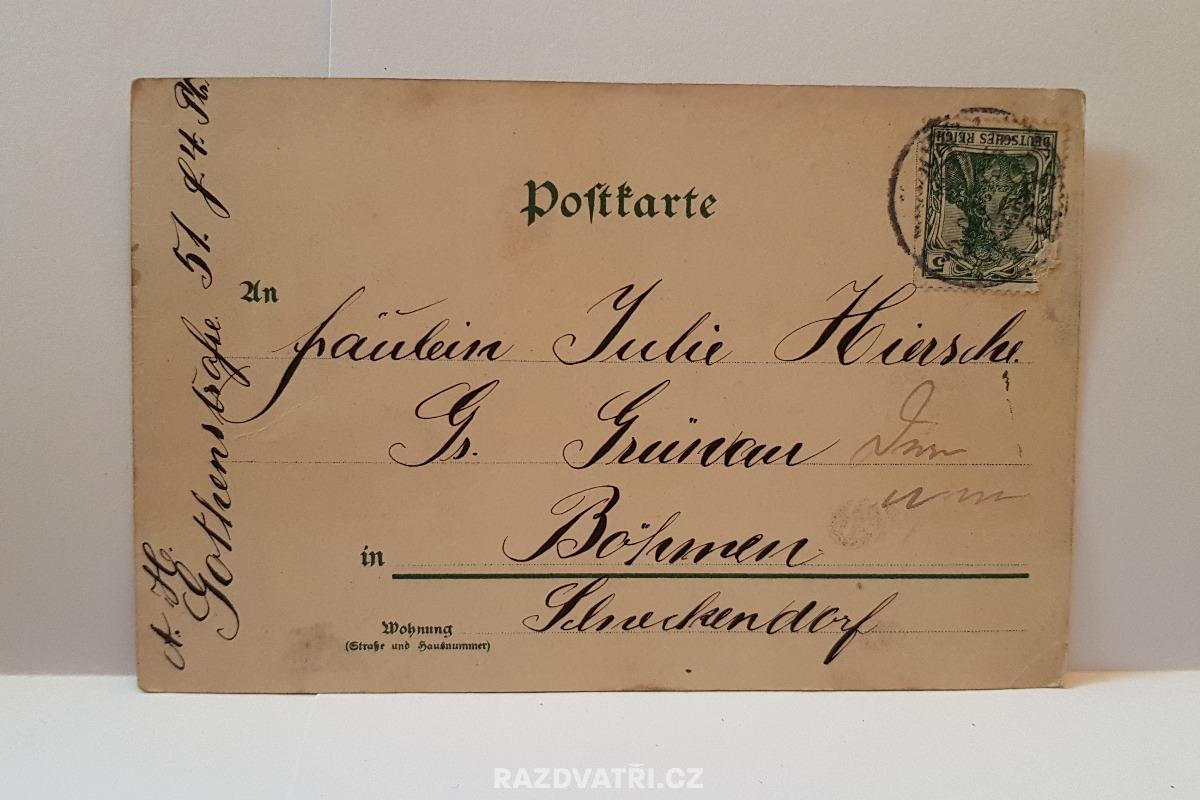 Postkarte
DEUTSCHES REICH
5
An
Fräulein Julie Hiersche
Gr. Grünau
in Böhmen
Schneckendorf
Wohnung
(Straße und Hausnummer)
A. H.
Gothenstraße 51.
RAZDVATŘI.CZ